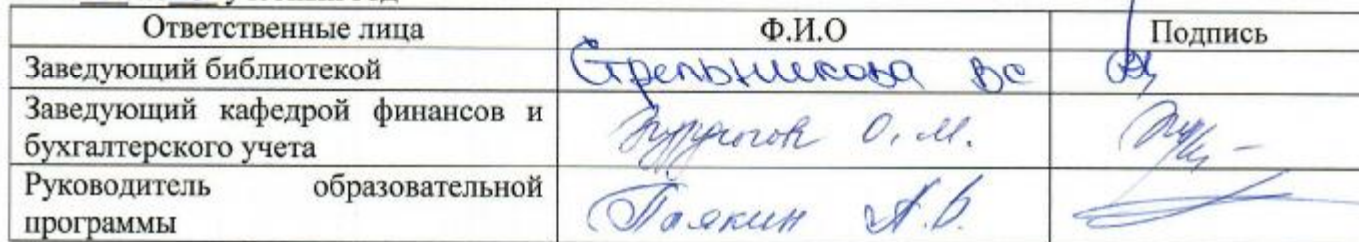 Ответственные лица Ф.И.О Подпись
Заведующий библиотекой Стрельникова ВС
Заведующий кафедрой финансов и
бухгалтерского учета О.М.
Руководитель образовательной
программы Паякин А.В.